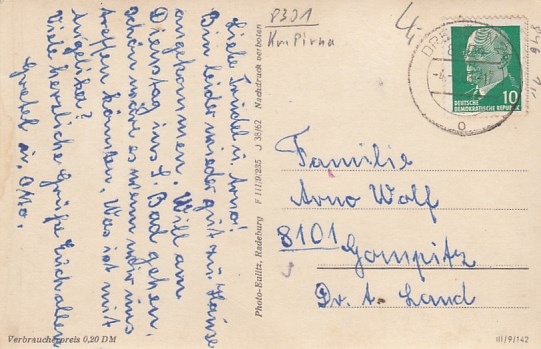 Liebe Trudel u. Arno!
Bin leider wieder gut zu Hause
angekommen. Will am
Dienstag ins L. Bad gehen.
Schön wäre es wenn wir uns
treffen könnten. Was ist mit
Angelika?
Viele herzliche Grüße Euch allen
Gretel u. Otto.
Verbraucherpreis 0,20 DM
Photo-Eulitz, Radeburg F III/9/235 J 38/62 Nachdruck verboten
8301
Krs Pirna
DRE
10
DEUTSCHE
DEMOKRATISCHE REPUBLIK
Familie
Arno Wolf
8101 Gompitz
Dr. A. Land
III/9/142